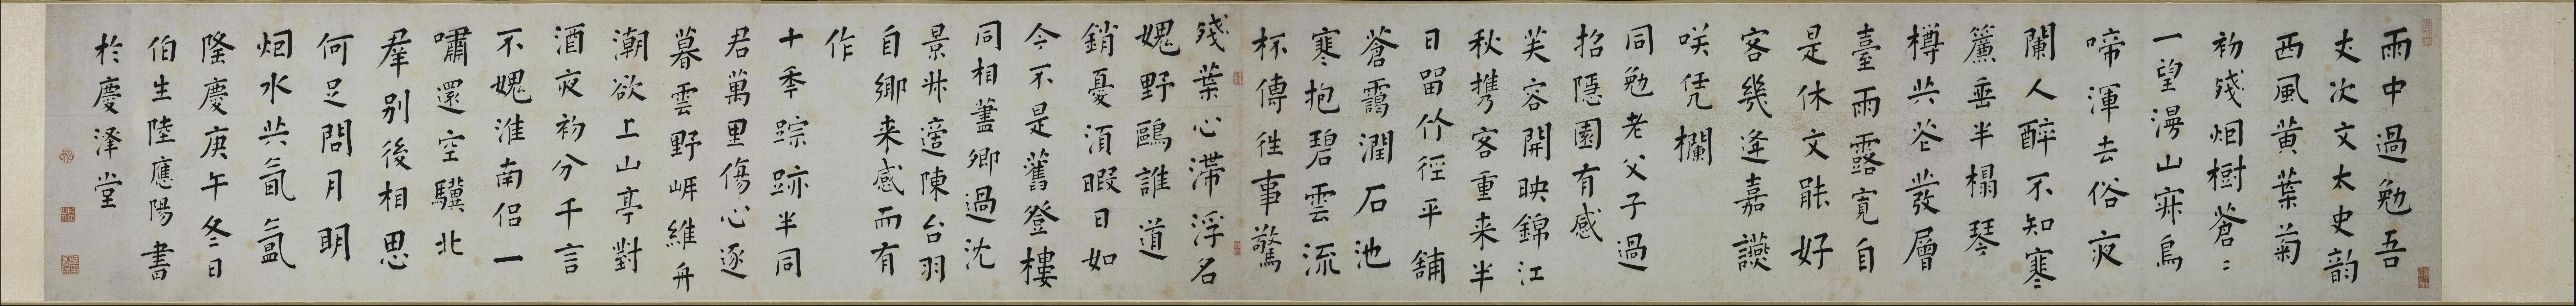 雨中過勉吾
丈次文太史韵
西風黄葉菊
初殘烟樹蒼〻
一望漫山寂鳥
啼渾去俗夜
闌人醉不知寒
簾垂半榻琴
樽共花發層
臺雨露寬自
是休文能好
客幾逢嘉讌
咲凭欄
同勉老父子過
招隱園有感
芙容開映錦江
秋携客重来半
日留竹徑平鋪
蒼靄潤石池
寒抱碧雲流
杯傳往事驚
殘葉心滞浮名
媿野鷗誰道
銷憂須暇日如
今不是舊登樓
同相藎卿過沈
景州適陳台羽
自鄉来感而有
作
十年踪跡半同
君萬里傷心逐
暮雲野岸維舟
潮欲上山亭對
酒夜初分千言
不媿淮南侣一
嘯還空驥北
羣别後相思
何足問月明
烟水共氤氲
隆慶庚午冬日
伯生陸應陽書
於慶澤堂